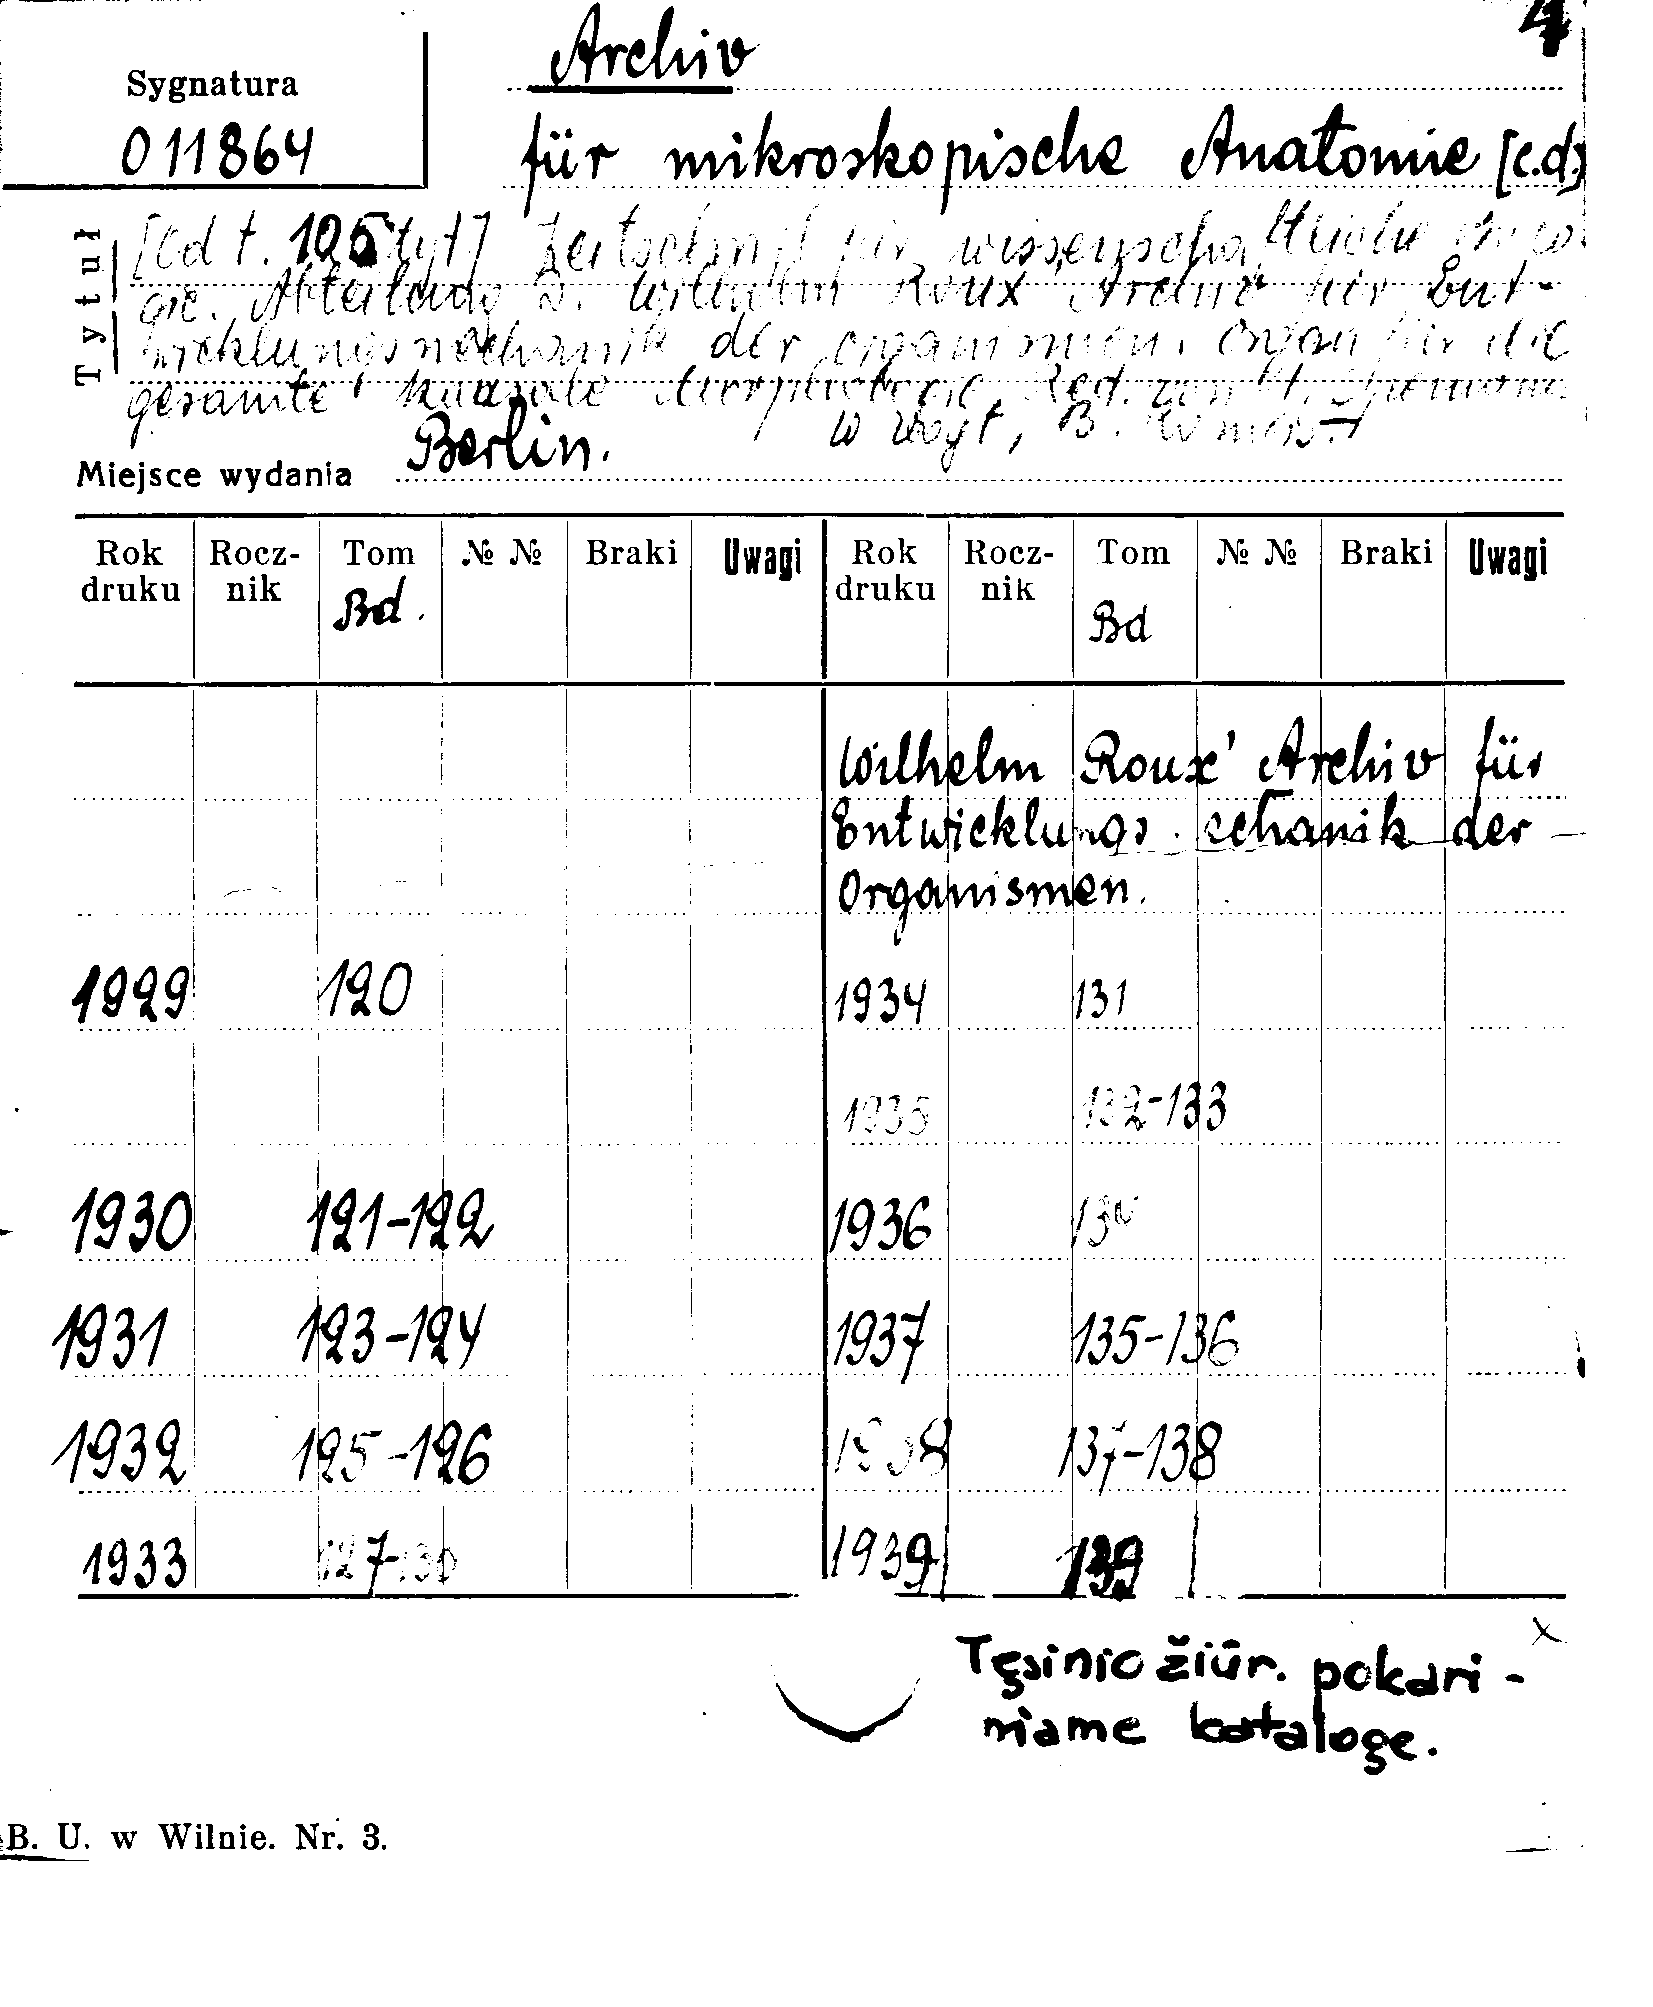 4
Archiv
Sygnatura
011864
für mikroskopische Anatomie [c.d.]
Tytuł
[cd t. 105 tyt] Zeitschrift für wissenschaftliche
gie. Abteilung D. Wilhelm Roux' Archiv für Ent-
wicklungsmechanik der Organismen. Organ für die
gesamte kausale Morphologie. Red. von H. Spemann
W Vogt, B. Romeis.
Miejsce wydania Berlin.
Rok druku Rocz-nik Tom Bd. № № Braki Uwagi Rok druku Rocz-nik Tom Bd № № Braki Uwagi
Wilhelm Roux' Archiv für
Entwicklungs chanik der
Organismen.
1929 120 1934 131
1935 132-133
1930 121-122 1936 134
1931 123-124 1937 135-136
1932 125-126 1938 137-138
1933 127-130 1939 139
Tęsinio žiūr. pokari-
niame kataloge.
B. U. w Wilnie. Nr. 3.